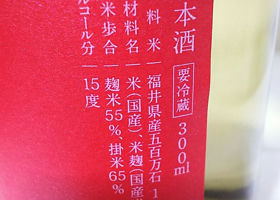 本酒
要冷蔵 300ml
料米 福井県産五百万石1
材料名 米(国産)、米麹(国産
米歩合 麹米55%、掛米65%
ルコール分 15度